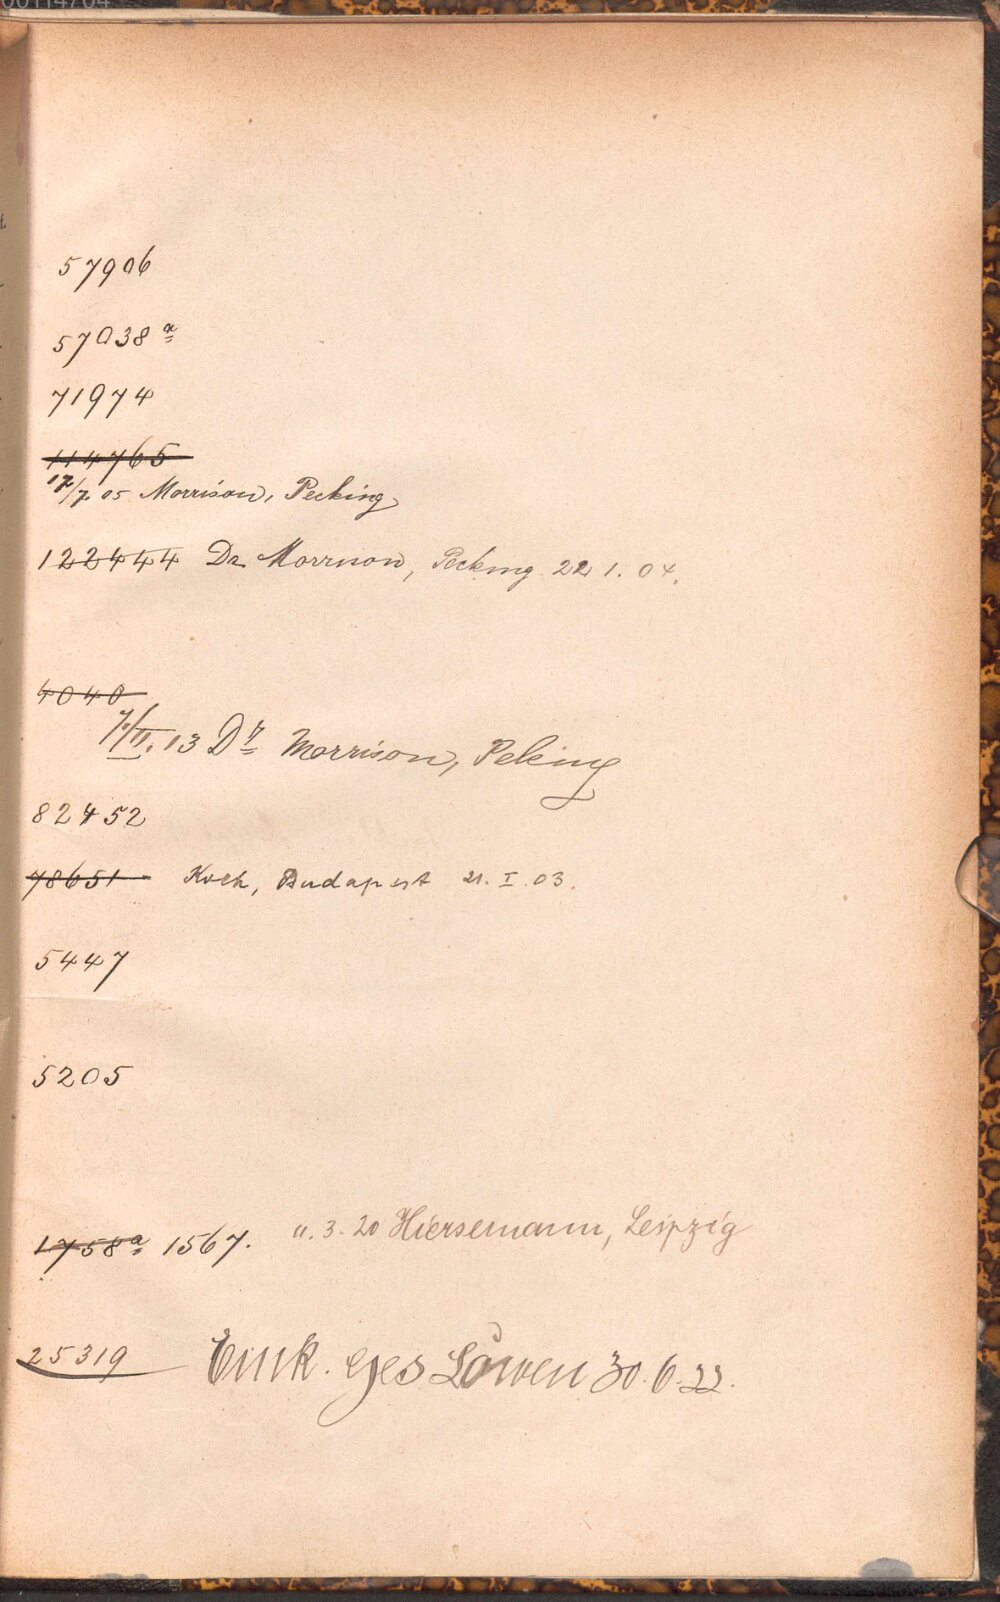 00114704
57906
57038 a
71974
114765
17/7 05 Morrison, Pecking
122444 Dr Morrison, Pecking 22 1. 04.
4040
7/II. 13 Dr Morrison, Peking
82452
78651 Koch, Budapest 21. I. 03.
5447
5205
1758a 1567. 11. 3. 20 Hiersemann, Leipzig
25319 ges Löwen 30. 6. 22.